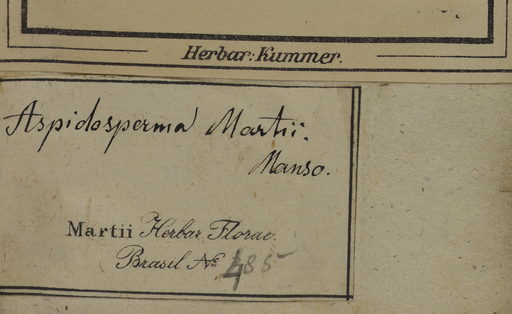 Herbar: Kummer.
Aspidosperma Martii.
Manso.
Martii Herbar. Florae
Brasil No 485